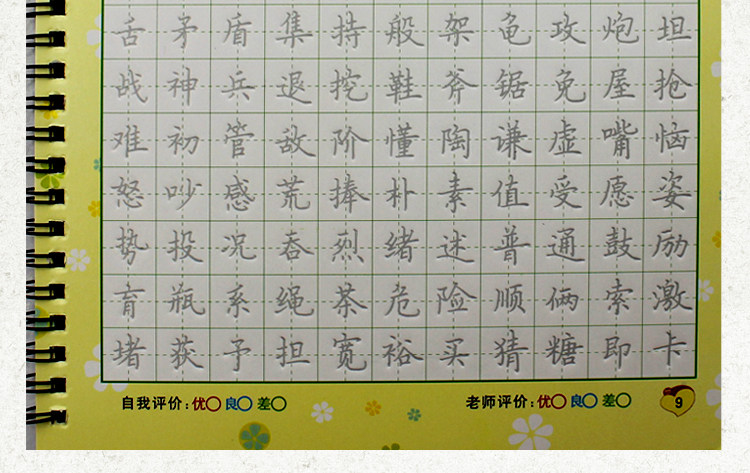 舌矛盾集持般架龟攻炮坦
战神兵退挖鞋斧锯免屋抢
难初管敌阶懂陶谦虚嘴恼
怒吵感荒捧朴素值受愿姿
势投况吞烈绪迷普通鼓励
育瓶系绳茶危险顺俩索激
堵获予担宽裕买猜糖即卡
自我评价:优 良 差 老师评价:优 良 差 9